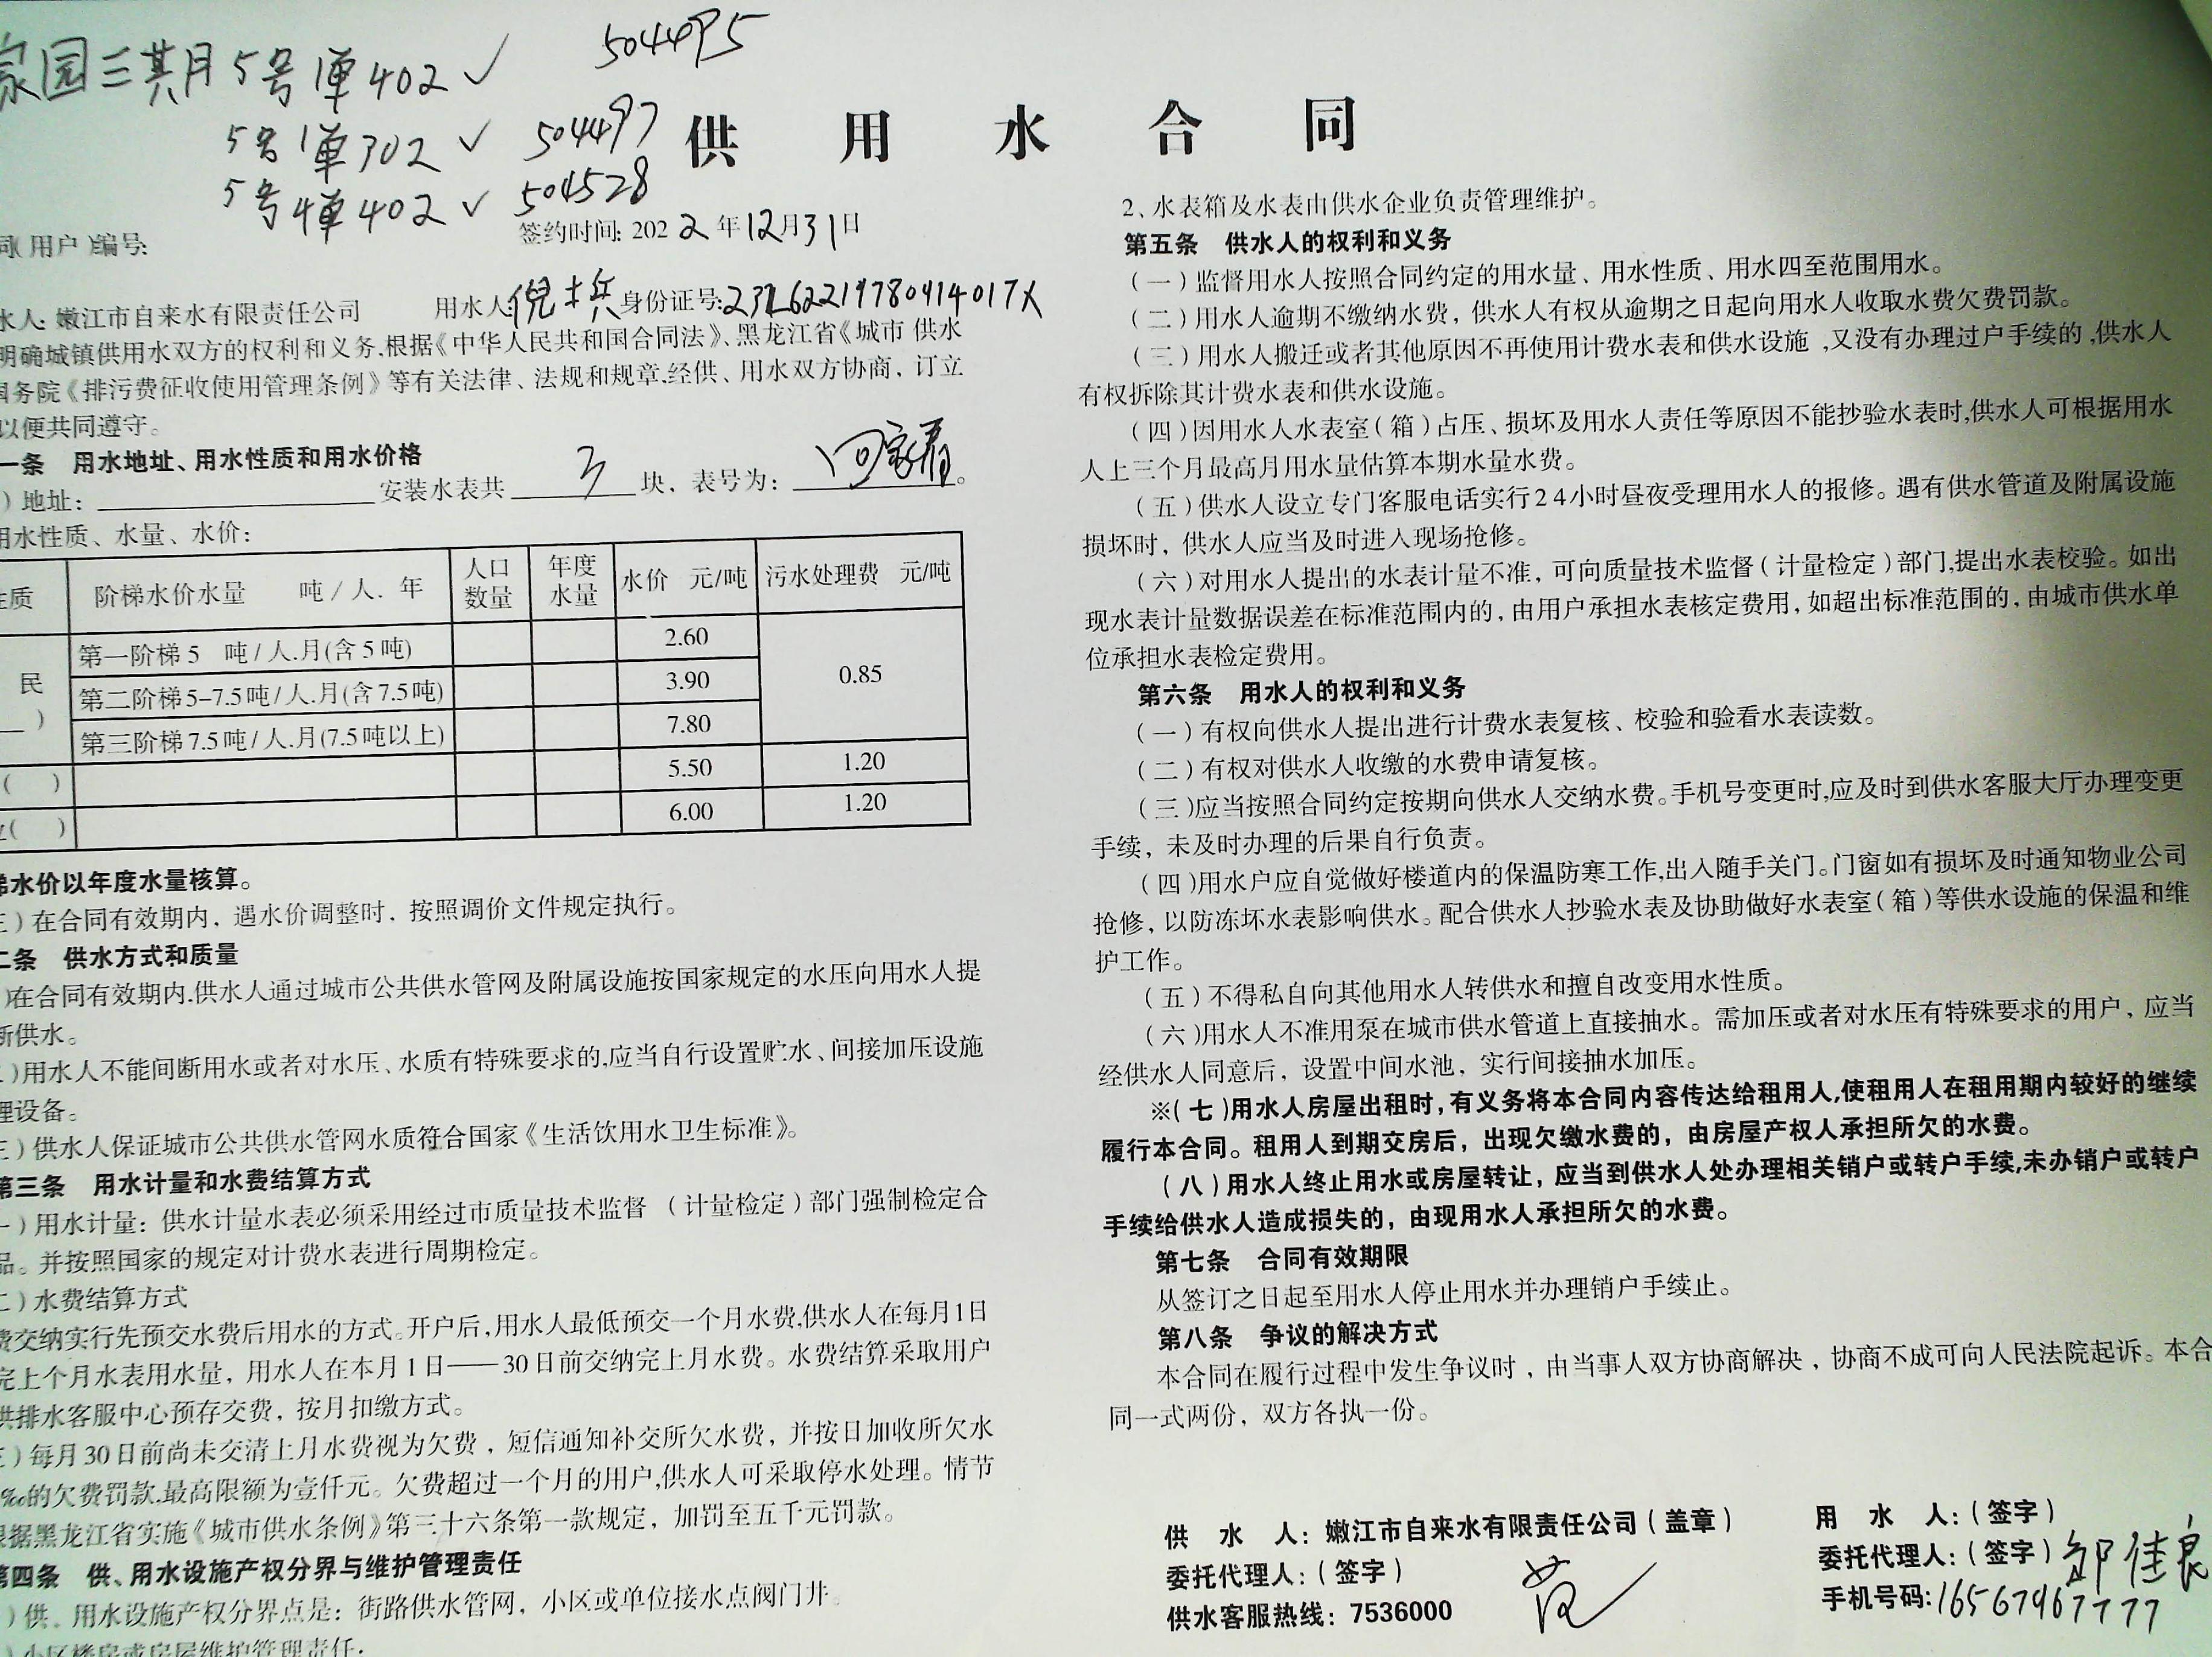 家园三其月5号1单402✓ 504495
5号1单302✓ 504497
5号4单402✓ 504528
供 用 水 合 同
签约时间: 2022年12月31日
同(用户)编号:
水人: 嫩江市自来水有限责任公司 用水人: 倪 身份证号:
明确城镇供用水双方的权利和义务,根据《中华人民共和国合同法》、黑龙江省《城市 供水
国务院《排污费征收使用管理条例》等有关法律、法规和规章,经供、用水双方协商，订立
以便共同遵守。
一条 用水地址、用水性质和用水价格
)地址: 安装水表共 3 块，表号为: 回家看。
用水性质、水量、水价:
性质 阶梯水价水量 吨/人. 年 人口数量 年度水量 水价 元/吨 污水处理费 元/吨
民 第一阶梯5 吨/人.月(含5吨) 2.60 0.85
第二阶梯5-7.5吨/人.月(含7.5吨) 3.90
) 第三阶梯7.5吨/人.月(7.5吨以上) 7.80
( ) 5.50 1.20
( ) 6.00 1.20
梯水价以年度水量核算。
三)在合同有效期内，遇水价调整时，按照调价文件规定执行。
二条 供水方式和质量
)在合同有效期内,供水人通过城市公共供水管网及附属设施按国家规定的水压向用水人提
断供水。
)用水人不能间断用水或者对水压、水质有特殊要求的,应当自行设置贮水、间接加压设施
理设备。
三)供水人保证城市公共供水管网水质符合国家《生活饮用水卫生标准》。
第三条 用水计量和水费结算方式
一)用水计量: 供水计量水表必须采用经过市质量技术监督 (计量检定)部门强制检定合
品。并按照国家的规定对计费水表进行周期检定。
二)水费结算方式
费交纳实行先预交水费后用水的方式。开户后,用水人最低预交一个月水费,供水人在每月1日
完上个月水表用水量，用水人在本月1日——30日前交纳完上月水费。水费结算采取用户
供排水客服中心预存交费，按月扣缴方式。
三)每月30日前尚未交清上月水费视为欠费，短信通知补交所欠水费，并按日加收所欠水
‰的欠费罚款,最高限额为壹仟元。欠费超过一个月的用户,供水人可采取停水处理。情节
根据黑龙江省实施《城市供水条例》第三十六条第一款规定，加罚至五千元罚款。
第四条 供、用水设施产权分界与维护管理责任
)供、用水设施产权分界点是: 街路供水管网，小区或单位接水点阀门井。
)小区楼房或房屋维护管理责任:
2、水表箱及水表由供水企业负责管理维护。
第五条 供水人的权利和义务
(一)监督用水人按照合同约定的用水量、用水性质、用水四至范围用水。
(二)用水人逾期不缴纳水费，供水人有权从逾期之日起向用水人收取水费欠费罚款。
(三)用水人搬迁或者其他原因不再使用计费水表和供水设施,又没有办理过户手续的,供水人
有权拆除其计费水表和供水设施。
(四)因用水人水表室(箱)占压、损坏及用水人责任等原因不能抄验水表时,供水人可根据用水
人上三个月最高月用水量估算本期水量水费。
(五)供水人设立专门客服电话实行24小时昼夜受理用水人的报修。遇有供水管道及附属设施
损坏时，供水人应当及时进入现场抢修。
(六)对用水人提出的水表计量不准，可向质量技术监督(计量检定)部门,提出水表校验。如出
现水表计量数据误差在标准范围内的，由用户承担水表核定费用，如超出标准范围的，由城市供水单
位承担水表检定费用。
第六条 用水人的权利和义务
(一)有权向供水人提出进行计费水表复核、校验和验看水表读数。
(二)有权对供水人收缴的水费申请复核。
(三)应当按照合同约定按期向供水人交纳水费。手机号变更时,应及时到供水客服大厅办理变更
手续，未及时办理的后果自行负责。
(四)用水户应自觉做好楼道内的保温防寒工作,出入随手关门。门窗如有损坏及时通知物业公司
抢修，以防冻坏水表影响供水。配合供水人抄验水表及协助做好水表室(箱)等供水设施的保温和维
护工作。
(五)不得私自向其他用水人转供水和擅自改变用水性质。
(六)用水人不准用泵在城市供水管道上直接抽水。需加压或者对水压有特殊要求的用户，应当
经供水人同意后，设置中间水池，实行间接抽水加压。
※(七)用水人房屋出租时,有义务将本合同内容传达给租用人,使租用人在租用期内较好的继续
履行本合同。租用人到期交房后，出现欠缴水费的，由房屋产权人承担所欠的水费。
(八)用水人终止用水或房屋转让，应当到供水人处办理相关销户或转户手续,未办销户或转户
手续给供水人造成损失的，由现用水人承担所欠的水费。
第七条 合同有效期限
从签订之日起至用水人停止用水并办理销户手续止。
第八条 争议的解决方式
本合同在履行过程中发生争议时，由当事人双方协商解决，协商不成可向人民法院起诉。本合
同一式两份，双方各执一份。
供 水 人: 嫩江市自来水有限责任公司(盖章)
委托代理人:(签字)
供水客服热线: 7536000
用 水 人:(签字)
委托代理人:(签字)邹佳良
手机号码:16567967777